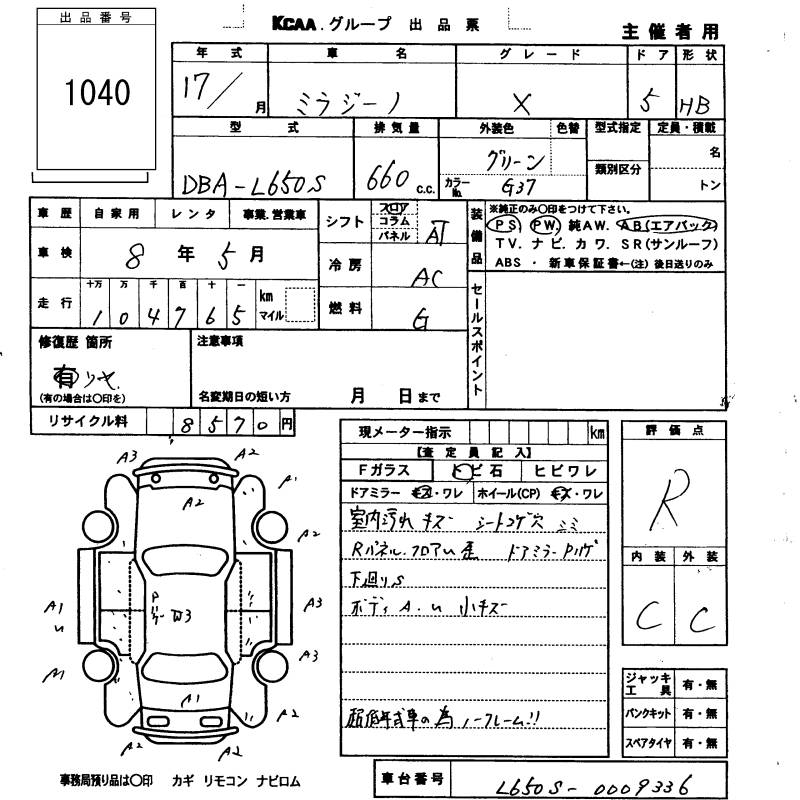 出品番号
1040
KCAA.グループ 出品票
主催者用
年式 車名 グレード ドア 形状
17/ 月 ミラジーノ X 5 HB
型式 排気量 外装色 色替 型式指定 定員・積載
DBA-L650S 660 c.c. グリーン 名
カラーNo. G37 類別区分 トン
車歴 自家用 レンタ 事業.営業車
シフト フロア コラム パネル AT
装備品
※純正のみ○印をつけて下さい。
PS PW 純AW. AB(エアバック)
TV. ナビ. カワ. SR(サンルーフ)
ABS ・ 新車保証書←(注) 後日送りのみ
車検 8年5月
冷房 AC
走行 十万 万 千 百 十 一 km マイル
104765
燃料 G
セールスポイント
修復歴 箇所
有 リヤ
(有の場合は○印を)
注意事項
名変期日の短い方 月 日まで
リサイクル料 8570円
現メーター指示 km
【査定員記入】
Fガラス トビ石 ヒビワレ
ドアミラー キズ・ワレ ホイール(CP) キズ・ワレ
室内汚れ キズ シートコゲ穴
Rパネル.フロアU歪 ドアミラーPハゲ
下廻りS
ボディA.U 小キズ
超低年式車の為ノークレーム!!
評価点
R
内装 外装
C C
ジャッキ工具 有・無
パンクキット 有・無
スペアタイヤ 有・無
A3 A2 A1
A2
A2
A1 U A3
P W3
A3
A1
A2
A2 A2
事務局預り品は○印 カギ リモコン ナビロム
車台番号 L650S-0009336